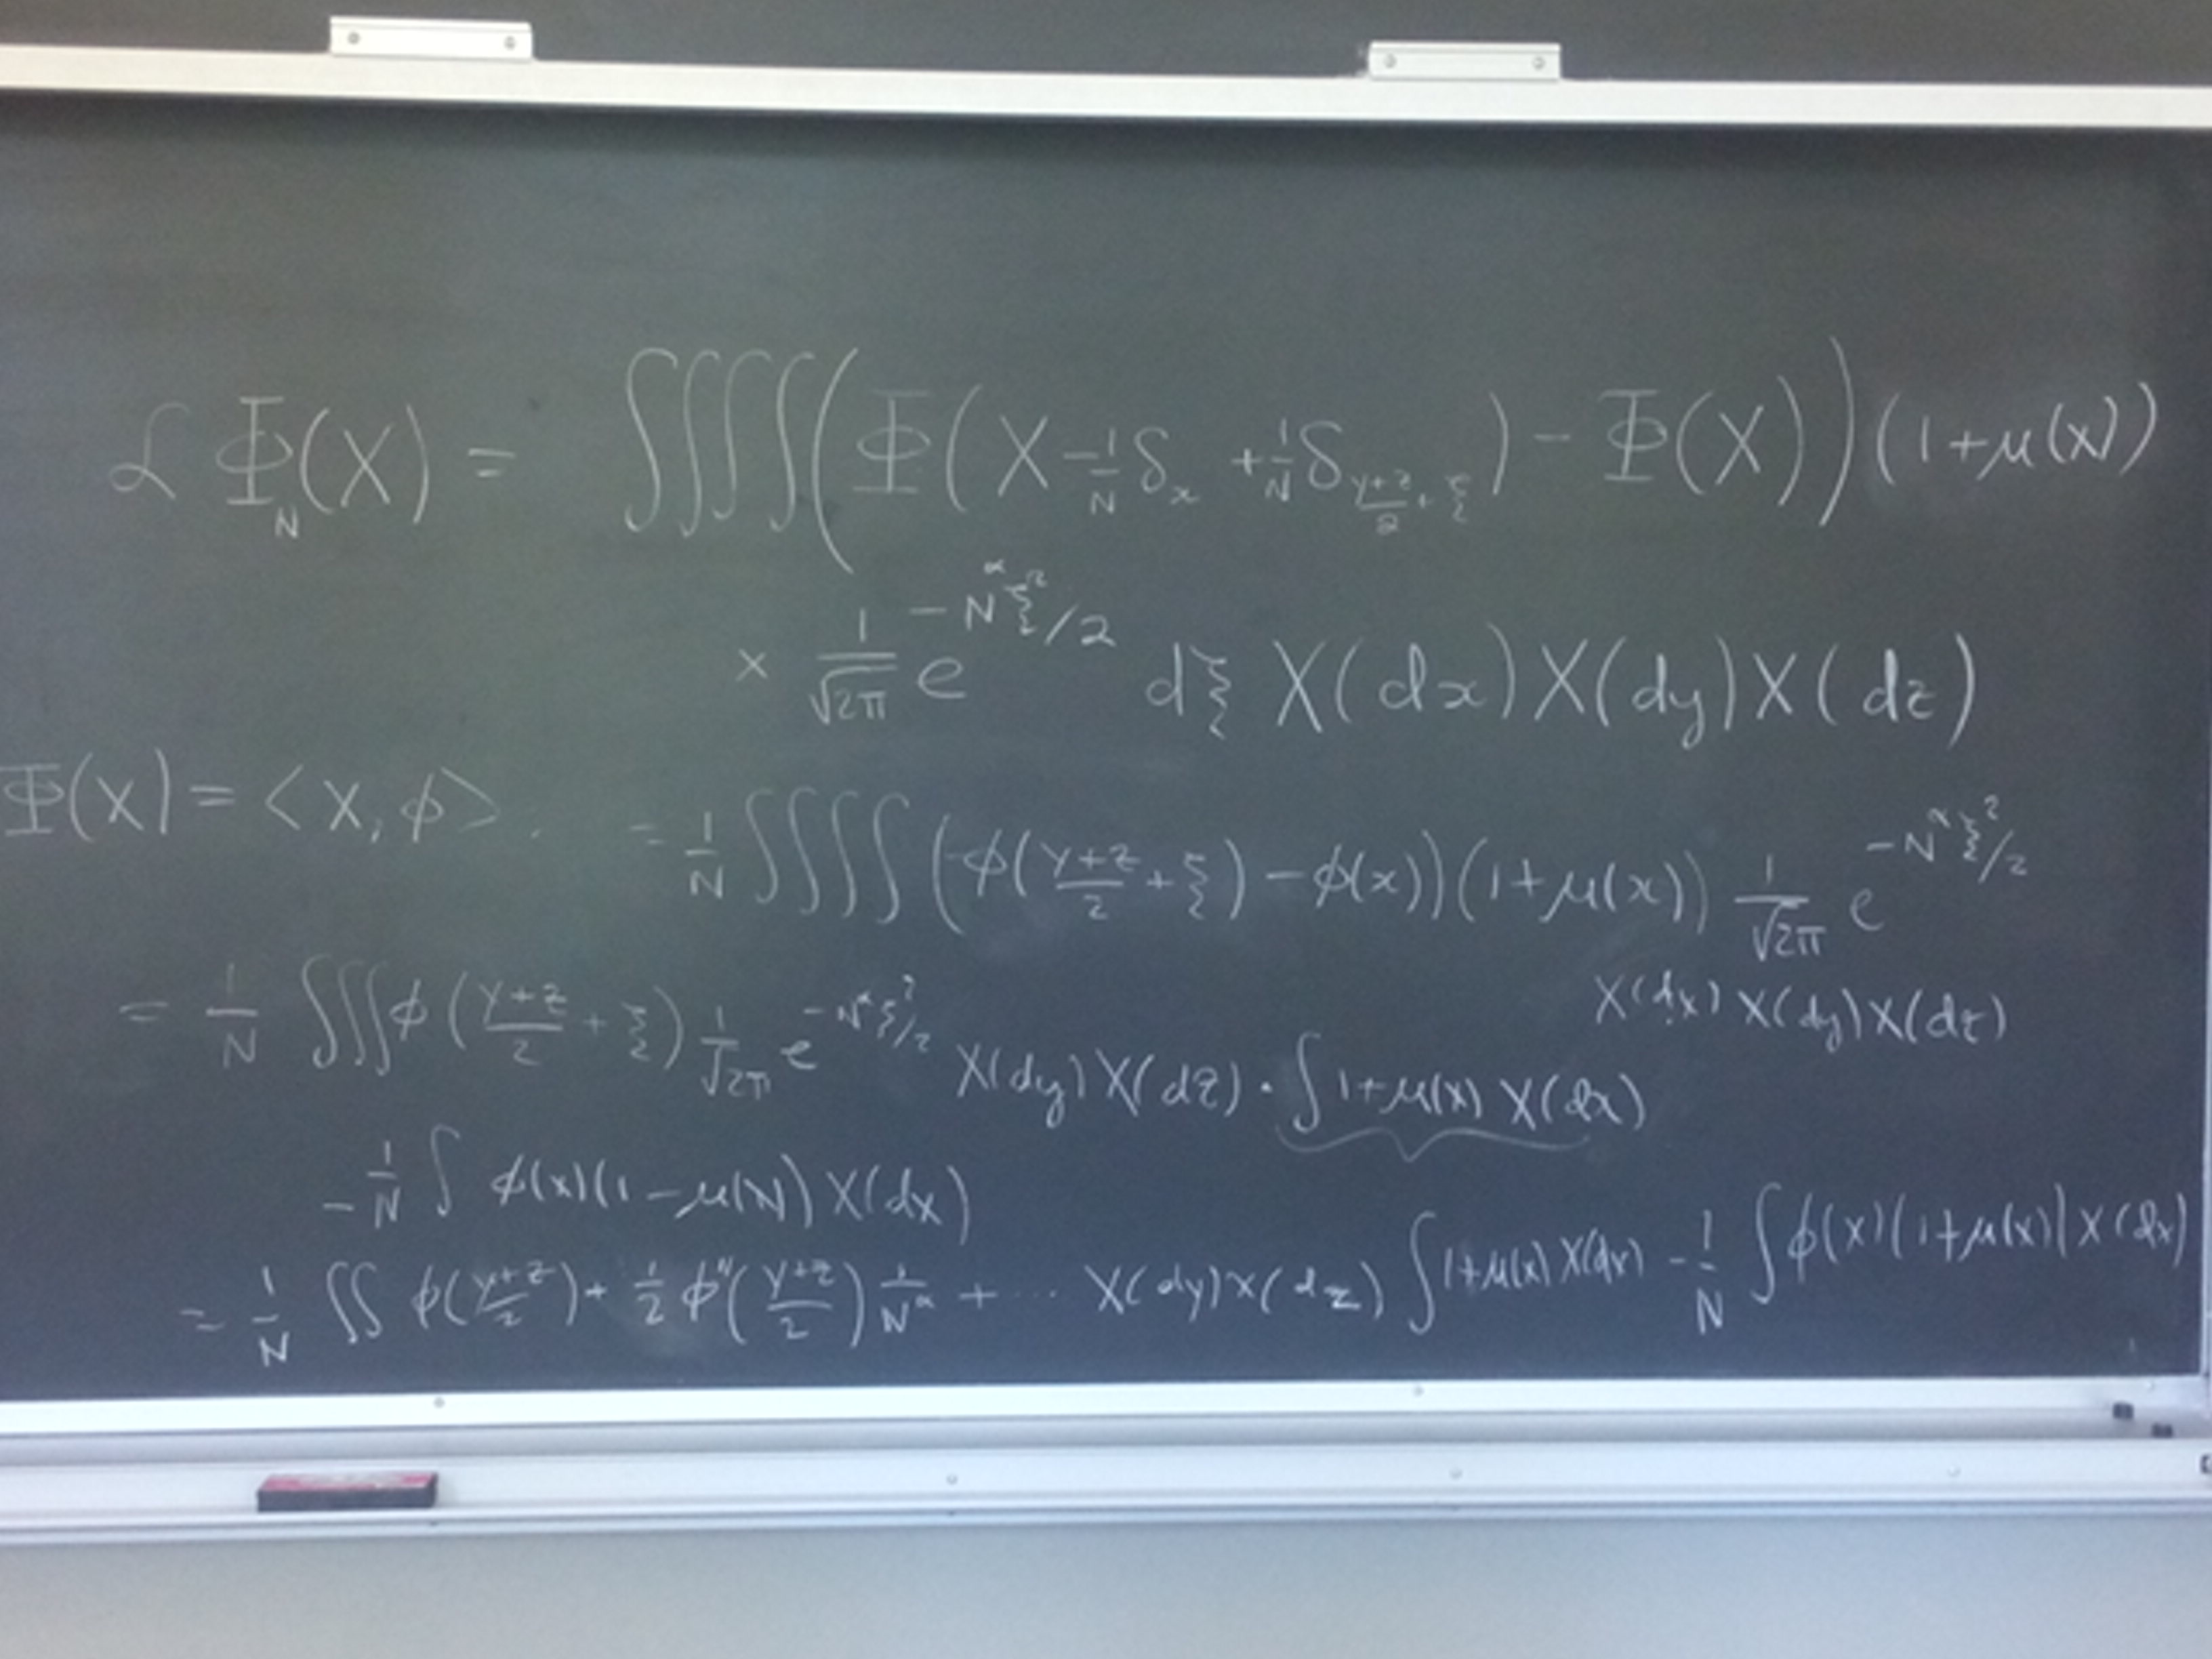 ℒ Φ_N(X) = ∫∫∫∫(Φ(X - 1/N δ_x + 1/N δ_{(y+z)/2 + ξ}) - Φ(X))(1+μ(x))
× 1/√2π e^{-N^α ξ²/2} dξ X(dx)X(dy)X(dz)
Φ(X) = <X, φ>. = 1/N ∫∫∫∫ (φ((y+z)/2 + ξ) - φ(x))(1+μ(x)) 1/√2π e^{-N^α ξ²/2}
X(dx) X(dy) X(dz)
= 1/N ∫∫∫ φ((y+z)/2 + ξ) 1/√2π e^{-N^α ξ²/2} X(dy) X(dz) · ∫ 1+μ(x) X(dx)
- 1/N ∫ φ(x)(1-μ(x)) X(dx)
= 1/N ∫∫ φ((y+z)/2) + 1/2 φ''((y+z)/2) 1/N^α + ... X(dy) X(dz) ∫ 1+μ(x) X(dx) - 1/N ∫ φ(x)(1+μ(x)) X(dx)